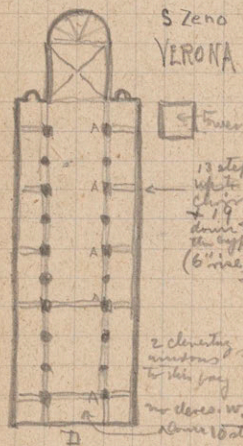 S Zeno
VERONA
A
tower
A
13 steps
up to
choir
+ 19
down to
the
(6" rise
A
A
2 clerestory
windows
to this bay
A
no cleres.
down 10
D